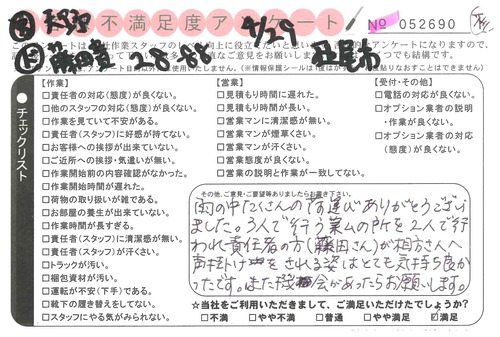 営 天野 不満足度アンケート 4/29 No 052690
作 藤田豊 28-88
チェックリスト
【作業】
□責任者の対応(態度)が良くない。
□他のスタッフの対応(態度)が良くない。
□作業を見ていて不安がある。
□責任者(スタッフ)に好感が持てない。
□お客様への挨拶が出来ていない。
□ご近所への挨拶・気遣いが無い。
□作業開始前の内容確認がなかった。
□作業開始時間が遅れた。
□荷物の取り扱いが雑である。
□お部屋の養生が出来ていない。
□作業時間が長すぎる。
□責任者(スタッフ)に清潔感が無い。
□責任者(スタッフ)が汗くさい。
□トラックが汚い。
□梱包資材が汚い。
□運転が不安(下手)である。
□靴下の履き替えをしてない。
□スタッフにやる気がみられない。
【営業】
□見積もり時間に遅れた。
□見積もり時間が長い。
□営業マンに清潔感が無い。
□営業マンが煙草くさい。
□営業マンが汗くさい。
□営業態度が良くない。
□営業の説明と作業が一致してない。
【受付・その他】
□電話の対応が良くない。
□オプション業者の説明
・作業が良くない。
□オプション業者の対応
(態度)が良くない。
その他、ご意見・ご要望等ありましたらお書き下さい。
雨の中たくさんの荷運びありがとうござい
ました。3人で行う予ムの所を2人で行
われ責任者の方(藤田さん)が相方さんへ
声掛けをされる姿はとても気持ち良か
ったです。また機会があったらお願いします。
☆当社をご利用いただきまして、ご満足いただけたでしょうか?
□不満 □やや不満 □普通 □やや満足 ☑満足